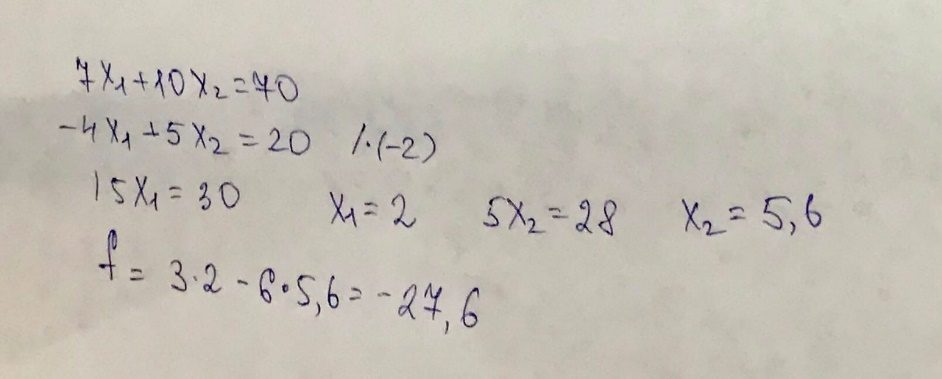 7x₁+10x₂=70
-4x₁+5x₂=20 /·(-2)
15x₁=30 x₁=2 5x₂=28 x₂=5,6
f= 3·2-6·5,6=-27,6